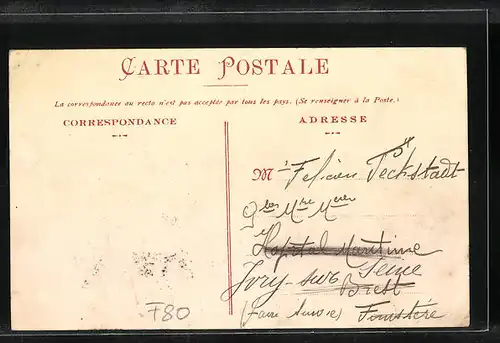 CARTE POSTALE
La correspondance au recto n'est pas acceptée par tous les pays. (Se renseigner à la Poste.)
CORRESPONDANCE
ADRESSE
M Felicien
Hopital Maritime
Ivry-sur Seine
Brest
(Faire Suivre) Finistère
F80